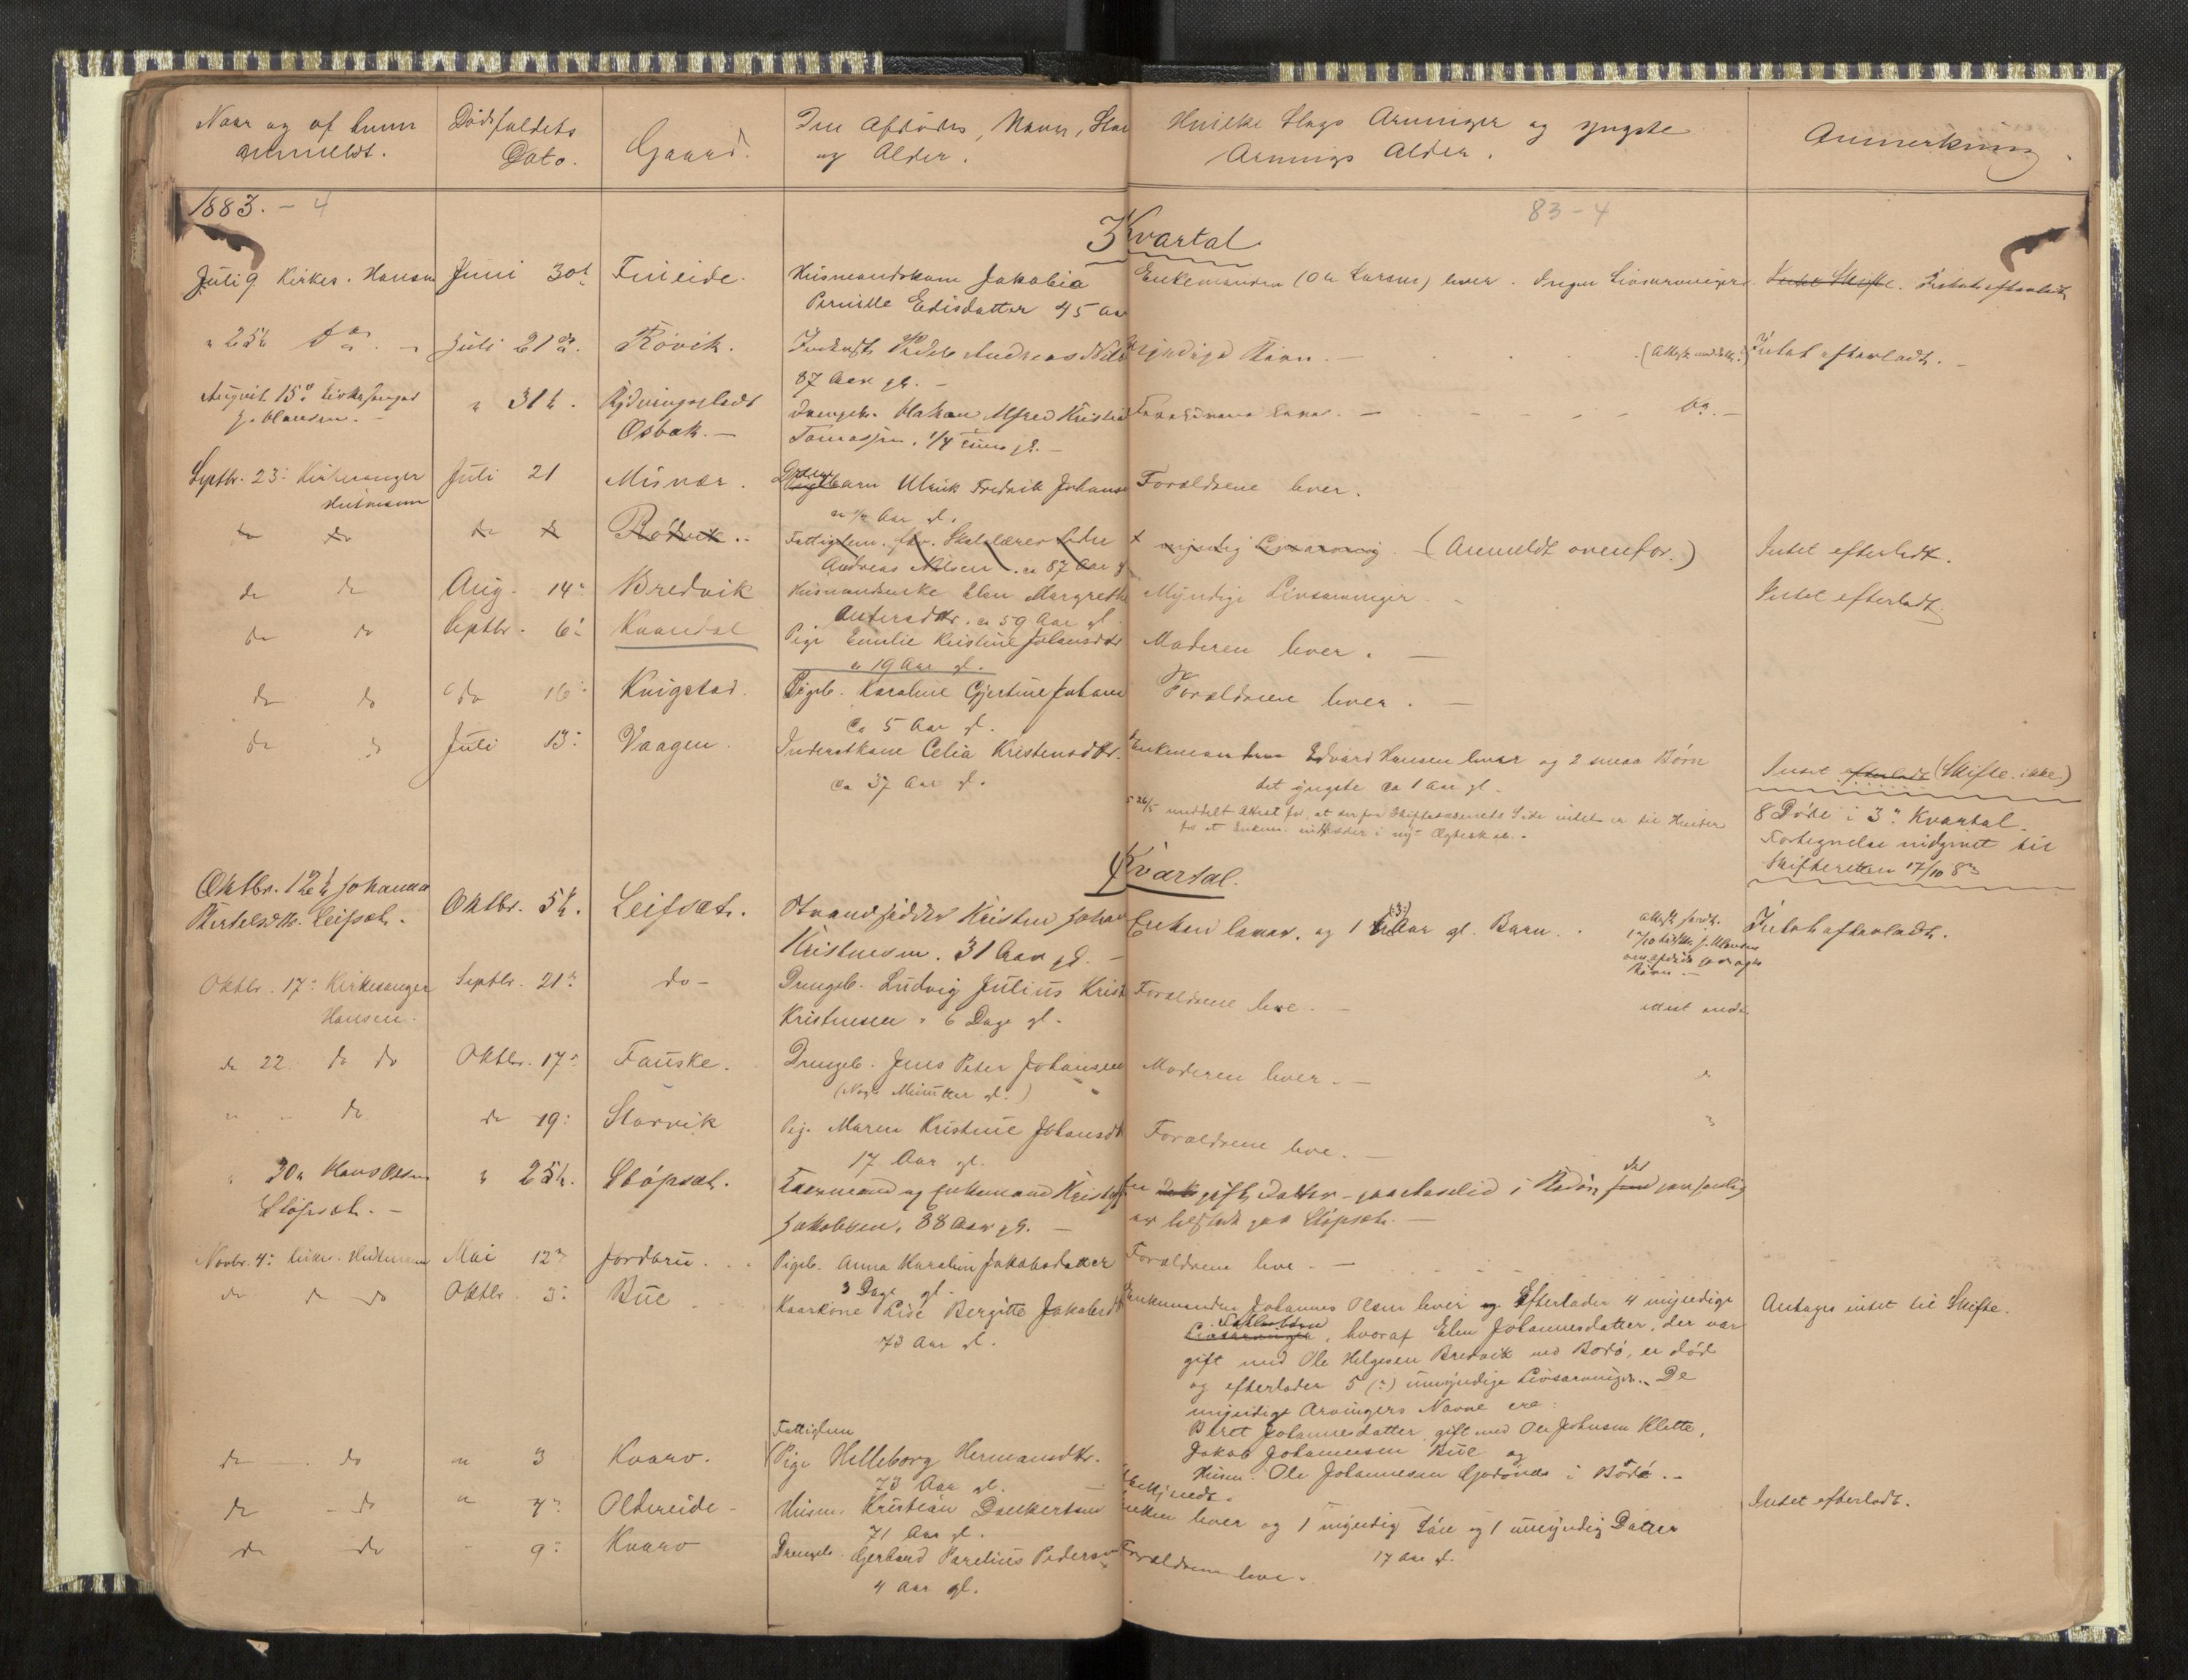 Naar og af hvem
anmeldt.
Dødsfaldets
Dato.
Gaard.
Den Afdødes, Navn, Stan
og Alder.
Hvilke Slags Arvinger og yngste
Arvings Alder.
Anmerkning.
1883. - 4
83 - 4
3 Kvartal
Juli 9 Kirkes. Hansen
Juni 30t
Fineide.
Husmandskone Jakobia
Pernille Edisdatter 45 Aar
Enkemanden (Ole Larsen) lever. Ingen Livsarvinger.
Intet Skifte. Intet efterladt
" 25de do
Juli 21de.
Røvik.
Inderst Peder Andreas Nils
87 Aar gl. -
Myndige Børn. -
(Attest meddelt)
Intet efterladt. -
August 15de Kirkesanger
J. Hansen. -
" 31te.
Rydningspladsen
Osbak. -
Drengeb. Hakon Alfred Kristia
Tomassen. 1/4 Time gl. -
Forældrene lever. -
do. -
Septbr. 23: Kirkesanger
Hutmann
Juli 21
Misvær.
Drengebarn Ulrik Fredrik Johans
Aar gl.
Forældrene lever.
do do
do do
Rødvik..
Fattiglem. fhv. Skolelærer Peder
Andreas Nilsen. ca 87 Aar g
myndig Livsarving. (Anmeldt ovenfor.)
Intet efterladt.
do do
Aug. 14:
Bredvik
Husmandsenke Elen Margrethe
Andersdtr. ca 59 Aar gl.
Myndige Livsarvinger.
Intet efterladt.
do do
Septbr. 6:
Kvandal
Pige Emilie Kristine Johansdtr
19 Aar gl.
Moderen lever. -
do do
do 16:
Kvigstad.
Pigeb. Karoline Gjertine Johans
ca 5 Aar gl.
Forældrene lever. -
do do
Juli 13:
Vaagen.
Inderstkone Celia Kristensdtr.
ca 37 Aar gl.
Enkemanden Edvard Hansen lever og 2 smaa Børn
det yngste ca 1 Aar gl.
26/5 meddelt Attest for, at der fra Skiftevæsenets Side intet er til Hinder
for at Enkem. indtræder i nyt Ægteskab. -
Intet efterladt (Skifte ikke)
8 Døde i 3: Kvartal.
Fortegnelse indgivet til
Skifteretten 17/10 83
4 Kvartal.
Oktbr. 12te Johanna
Bertelsdtr. Leifset.
Oktbr. 5te.
Leifset.
Strandsidder Kristen Johan
Kristensen. 31 Aar gl. -
Enken lever, og 1 (3) Aar gl. Barn.
Attest sendt
17/10
Intet efterladt.
Oktbr. 17: Kirkesanger
Hansen.
Septbr. 21:
do -
Drengeb. Ludvig Julius Krist
Kristensen. 6 Dage gl.
Forældrene leve. -
do 22. do do
Oktbr. 17:
Fauske.
Drengeb. Jens Peter Johansen
(Nogle Minutter gl.)
Moderen lever. -
" - do
do 19:
Storvik
Pige Maren Kristine Johansdt
17 Aar gl.
Forældrene leve. -
" 30te Hans Olsen
Støpset. -
" 25te.
Støpset.
Kaarmand og Enkemand Kristof
Jakobsen, 88 Aar gl. -
en gift Datter
Støpset. -
Novbr. 4: Kirkes. Hutmann
Mai 12:
Jordbru.
Pigeb. Anna Karolin Jakobsdatter
3 Dage gl.
Forældrene leve. -
do do do
Oktbr. 3:
Bue
Kaarkone Lise Bergitte Jakobsdt
73 Aar gl.
Enkemanden Johannes Olsen lever og Efterlader 4 myndige
Livsarvinger, hvoraf Elen Johannesdatter, der var
gift med Ole Helgesen Bredvik ved Bodø, er død
og efterlader 5 (?) umyndige Livsarvinger. De
myndige Arvingers Navne ere:
Beret Johannesdatter, gift med Ole Johnsen Klette,
Jakob Johannesen Bue og
Husm. Ole Johannesen i Bodø. -
Antages intet til Skifte.
do - do
" 3
Kvarv.
Fattiglem
Pige Helleborg Hermansdtr.
73 Aar gl.
Ubekjendt.
do - do
" 7:
Oldereide -
Husm. Kristian Dankertsen
71 Aar gl.
Enken lever og 1 myndig Søn og 1 umyndig Datter
17 Aar gl.
Intet efterladt.
do do
" 9:
Kvarv
Drengeb. Gerhard Parelius Pedersen
4 Aar gl.
Forældrene leve.